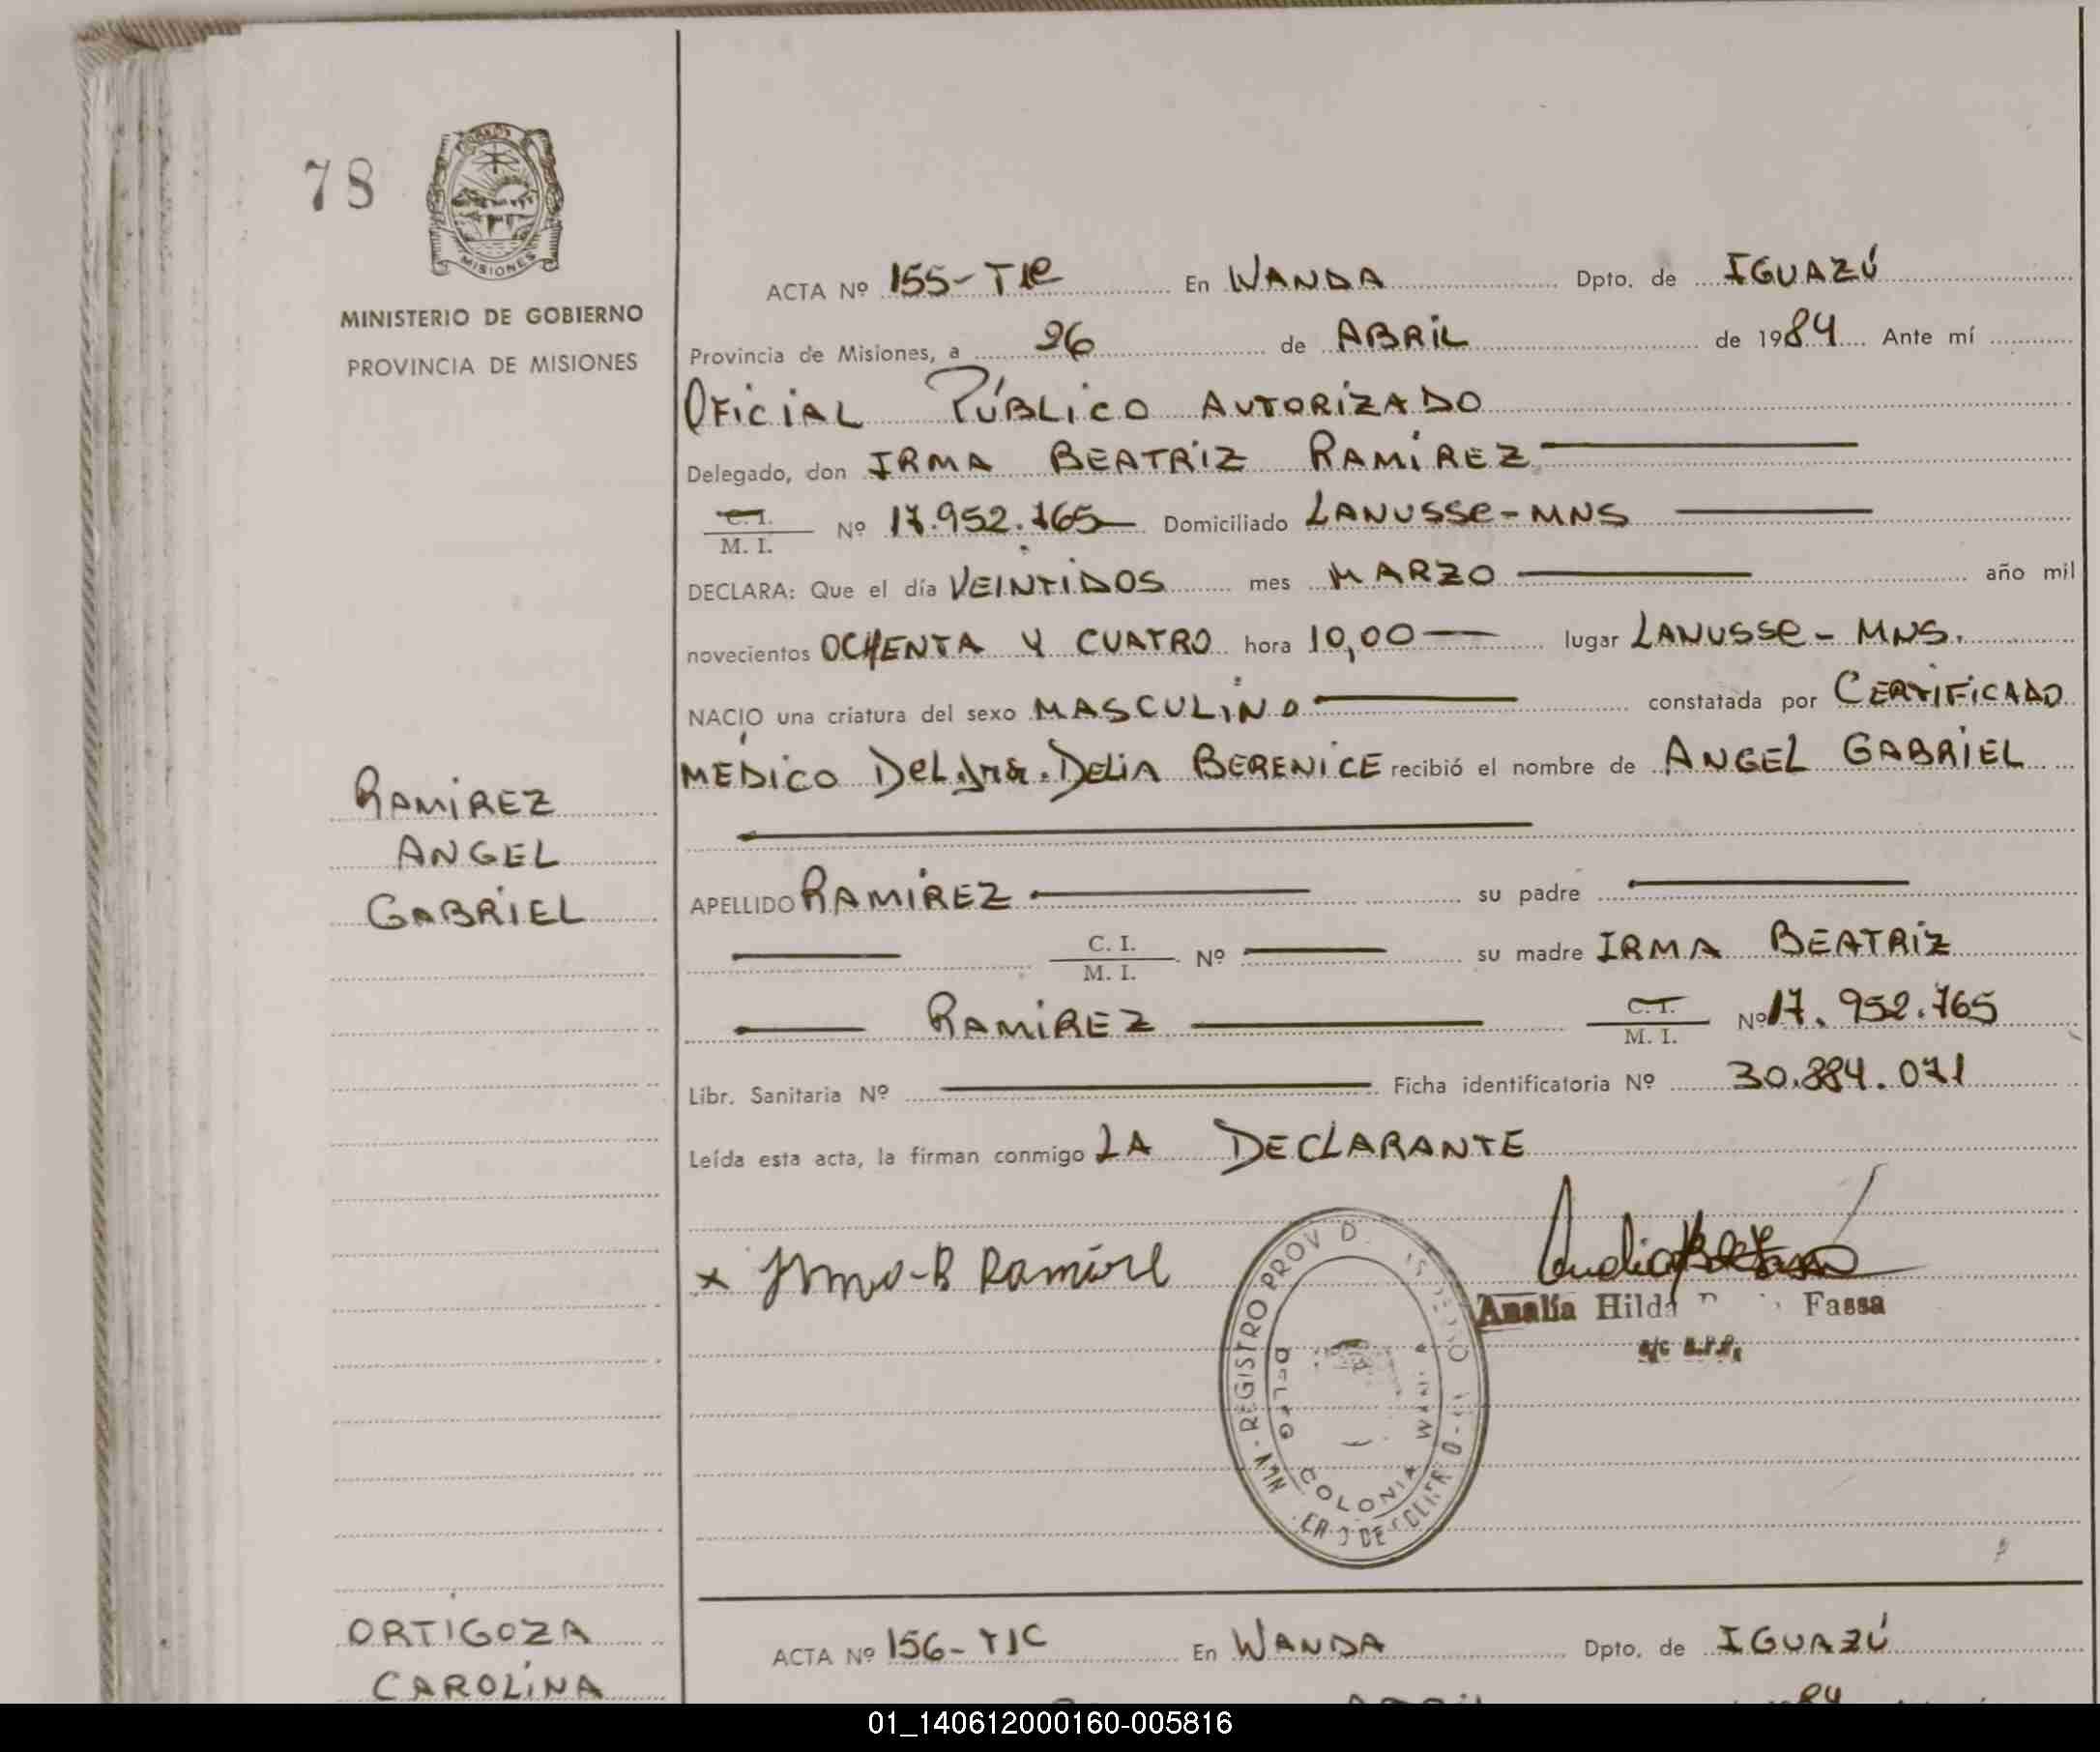 78
MISIONES
MINISTERIO DE GOBIERNO
PROVINCIA DE MISIONES
RAMIREZ
ANGEL
GABRIEL
ACTA Nº 155-TIC En WANDA Dpto. de IGUAZÚ
Provincia de Misiones, a 26 de ABRIL de 1984 Ante mí
OFICIAL PÚBLICO AUTORIZADO
Delegado, don IRMA BEATRIZ RAMIREZ
C. I. / M. I. Nº 17.952.765 Domiciliado LANUSSE-MNS
DECLARA: Que el día VEINTIDOS mes MARZO año mil
novecientos OCHENTA Y CUATRO hora 10,00 lugar LANUSSE-MNS.
NACIO una criatura del sexo MASCULINO constatada por CERTIFICADO
MÉDICO DEL Dra. DELIA BERENICE recibió el nombre de ANGEL GABRIEL
APELLIDO RAMIREZ su padre
C. I. / M. I. Nº su madre IRMA BEATRIZ
RAMIREZ C. I. / M. I. Nº 17.952.765
Libr. Sanitaria Nº Ficha identificatoria Nº 30.884.071
Leída esta acta, la firman conmigo LA DECLARANTE
x Irma-B Ramirez
REGISTRO PROV D.
COLONIA
Analía Hilda Fassa
ORTIGOZA
CAROLINA
ACTA Nº 156-TIC En WANDA Dpto. de IGUAZÚ
84
01_140612000160-005816